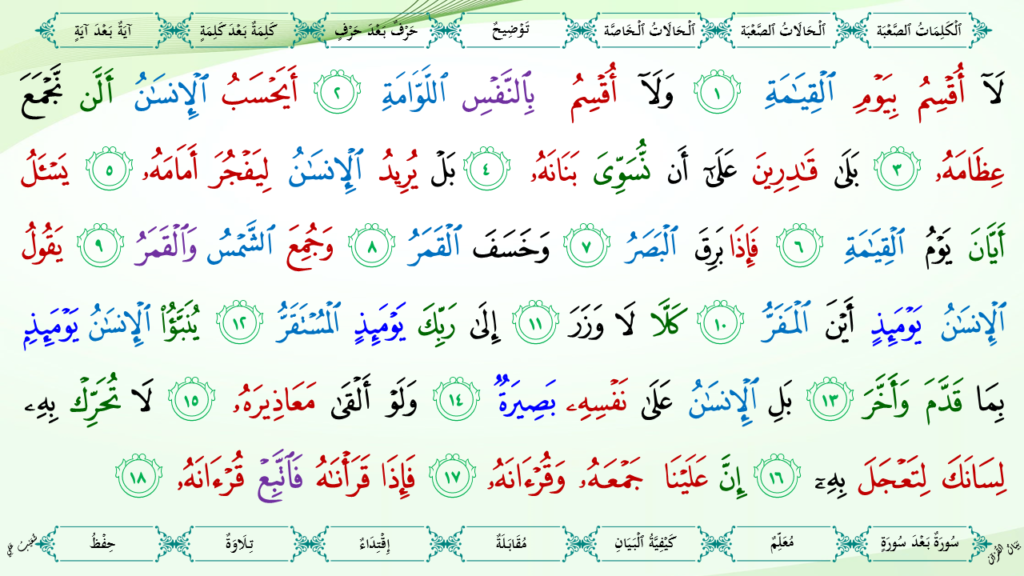 اَلْكَلِمَاتُ الصَّعْبَة اَلْحَالَاتُ الصَّعْبَة اَلْحَالَاتُ الْخَاصَّة تَوْضِيحٌ حَرْفٌ بَعْدَ حَرْفٍ كَلِمَةٌ بَعْدَ كَلِمَةٍ آيَةٌ بَعْدَ آيَةٍ
لَآ أُقْسِمُ بِيَوْمِ ٱلْقِيَـٰمَةِ ١ وَلَآ أُقْسِمُ بِٱلنَّفْسِ ٱللَّوَّامَةِ ٢ أَيَحْسَبُ ٱلْإِنسَـٰنُ أَلَّن نَّجْمَعَ
عِظَامَهُۥ ٣ بَلَىٰ قَـٰدِرِينَ عَلَىٰٓ أَن نُّسَوِّىَ بَنَانَهُۥ ٤ بَلْ يُرِيدُ ٱلْإِنسَـٰنُ لِيَفْجُرَ أَمَامَهُۥ ٥ يَسْـَٔلُ
أَيَّانَ يَوْمُ ٱلْقِيَـٰمَةِ ٦ فَإِذَا بَرِقَ ٱلْبَصَرُ ٧ وَخَسَفَ ٱلْقَمَرُ ٨ وَجُمِعَ ٱلشَّمْسُ وَٱلْقَمَرُ ٩ يَقُولُ
ٱلْإِنسَـٰنُ يَوْمَئِذٍ أَيْنَ ٱلْمَفَرُّ ١٠ كَلَّا لَا وَزَرَ ١١ إِلَىٰ رَبِّكَ يَوْمَئِذٍ ٱلْمُسْتَقَرُّ ١٢ يُنَبَّؤُا۟ ٱلْإِنسَـٰنُ يَوْمَئِذٍۭ
بِمَا قَدَّمَ وَأَخَّرَ ١٣ بَلِ ٱلْإِنسَـٰنُ عَلَىٰ نَفْسِهِۦ بَصِيرَةٌ ١٤ وَلَوْ أَلْقَىٰ مَعَاذِيرَهُۥ ١٥ لَا تُحَرِّكْ بِهِۦ
لِسَانَكَ لِتَعْجَلَ بِهِۦٓ ١٦ إِنَّ عَلَيْنَا جَمْعَهُۥ وَقُرْءَانَهُۥ ١٧ فَإِذَا قَرَأْنَـٰهُ فَٱتَّبِعْ قُرْءَانَهُۥ ١٨
سُورَةٌ بَعْدَ سُورَةٍ مُعَلِّمٌ كَيْفِيَّةُ الْبَيَانِ مُقَابَلَةٌ إِقْتِدَاءٌ تِلَاوَةٌ حِفْظٌ